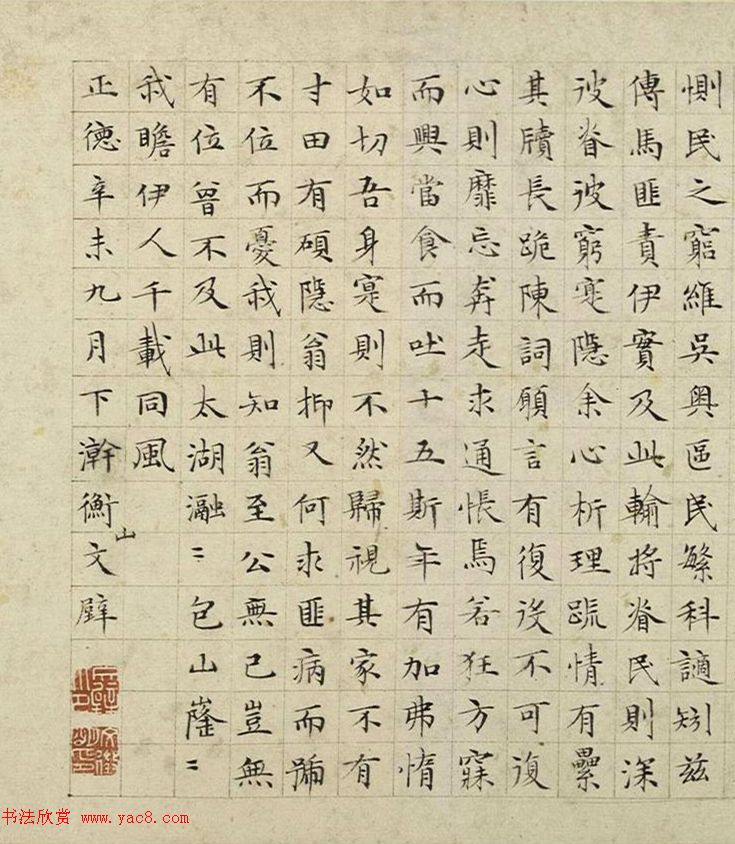 惻民之窮維吳興區民繁科讁矧兹
傳馬匪責伊實及此輸将眷民則深
彼眷彼窮寔隱余心析理䟽情有纍
其牘長跪陳詞願言有復役不可復
心則靡忘奔走求通悵焉若狂方寐
而興當食而吐十五斯年有加弗惰
如切吾身寔則不然歸視其家不有
寸田有碩隱翁抑又何求匪病而號
不位而憂我則知翁至公無己豈無
有位曾不及此太湖瀜〻包山嶐〻
我瞻伊人千載同風
正德辛未九月下澣衡山文壁
书法欣赏 www.yac8.com